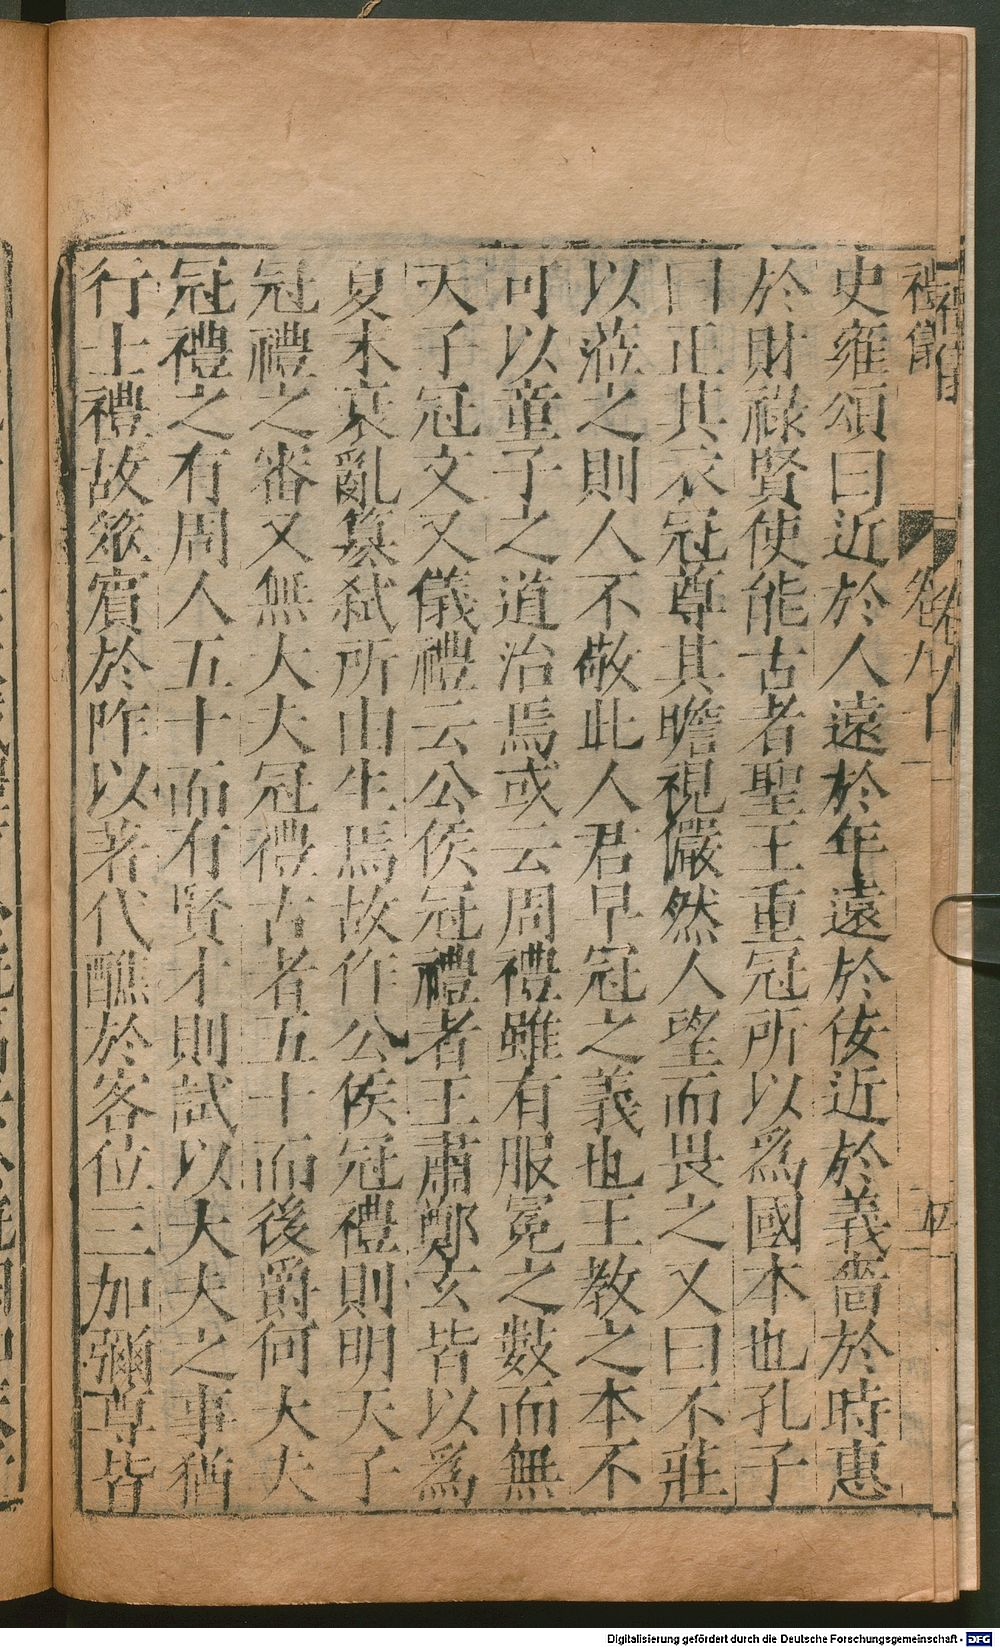 史雍頌曰近於人遠於年遠於佞近於義嗇於時惠
於財祿賢使能古者聖王重冠所以為國本也孔子
曰正其衣冠尊其瞻視儼然人望而畏之又曰不莊
以蒞之則人不敬此人君早冠之義也王教之本不
可以童子之道治焉或云周禮雖有服冕之數而無
天子冠文又儀禮云公侯冠禮者王肅鄭玄皆以為
夏末衰亂篡弒所由生焉故作公侯冠禮則明天子
冠禮之審又無大夫冠禮古者五十而後爵何大夫
冠禮之有周人五十而有賢才則試以大夫之事猶
行士禮故筮賓於阼以著代醮於客位三加彌尊皆
禮儀
卷九
Digitalisierung gefördert durch die Deutsche Forschungsgemeinschaft - DFG